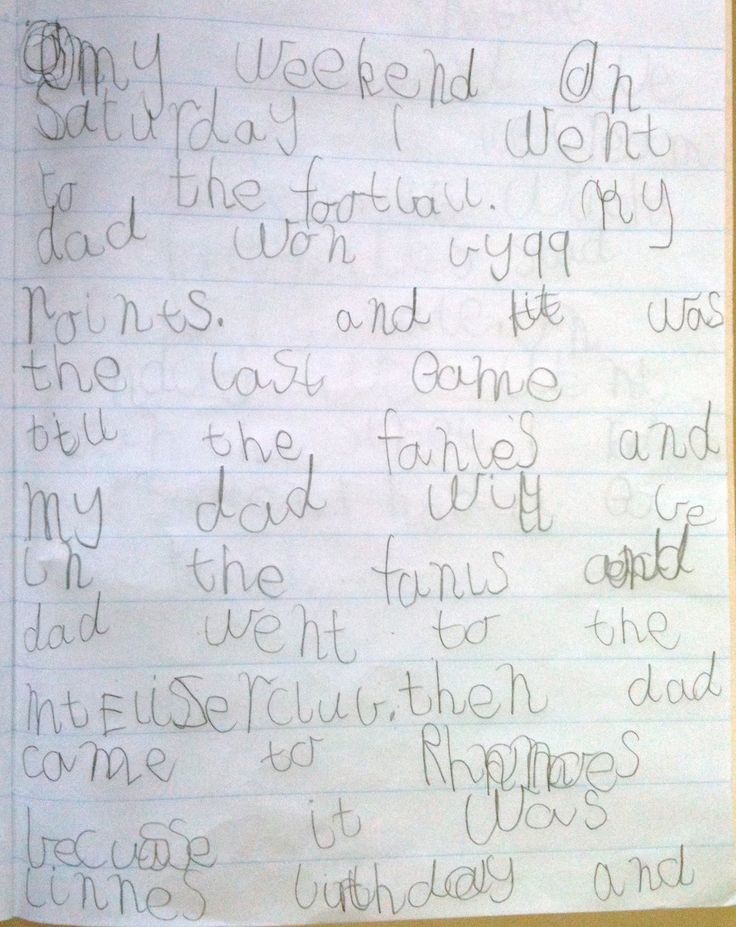 my weekend On
Saturday I went
to the football. My
dad won by 99
points. and it was
the last Game
till the fanle's and
my dad will be
in the fanls and
dad went to the
mt Eliser club. then dad
came to
becuase it was
linnes birthday and